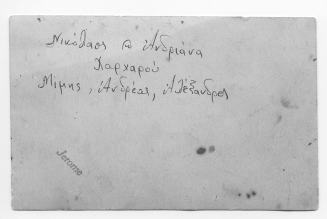 Νικόλαος @ Ἀνδριάνα
Καρχαρού
Μίμης, Ἀνδρέας, Ἀλέξανδρος
Jerome